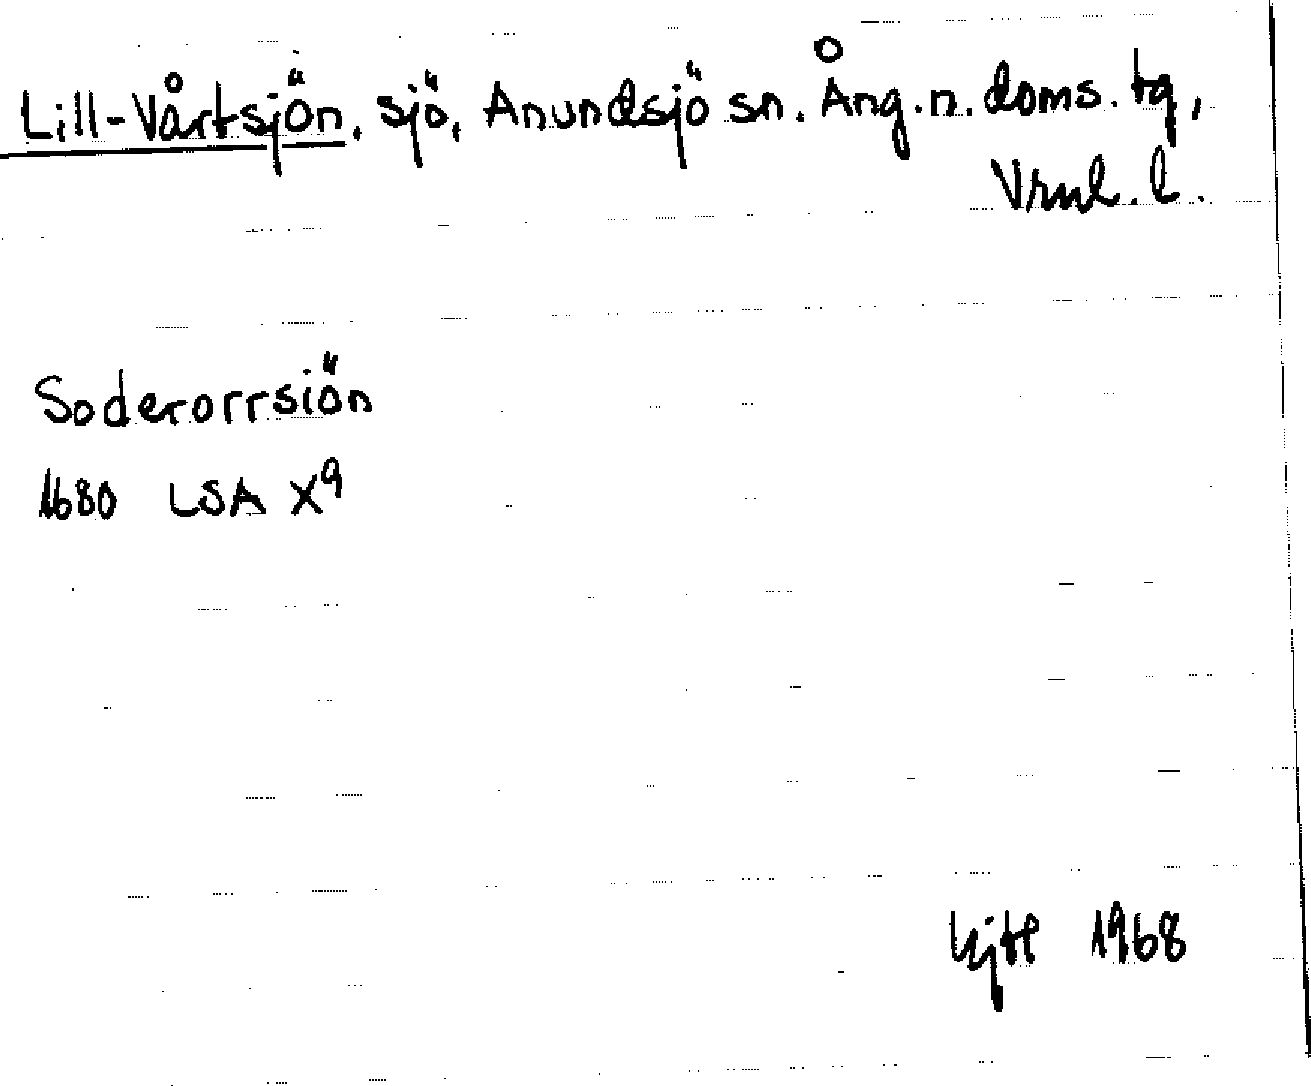 Lill-Vårtsjön, sjö, Anundsjö sn. Ång.n. doms. tg,
Vrnl. l.
Soderorrsiön
1680 LSA X9
1968